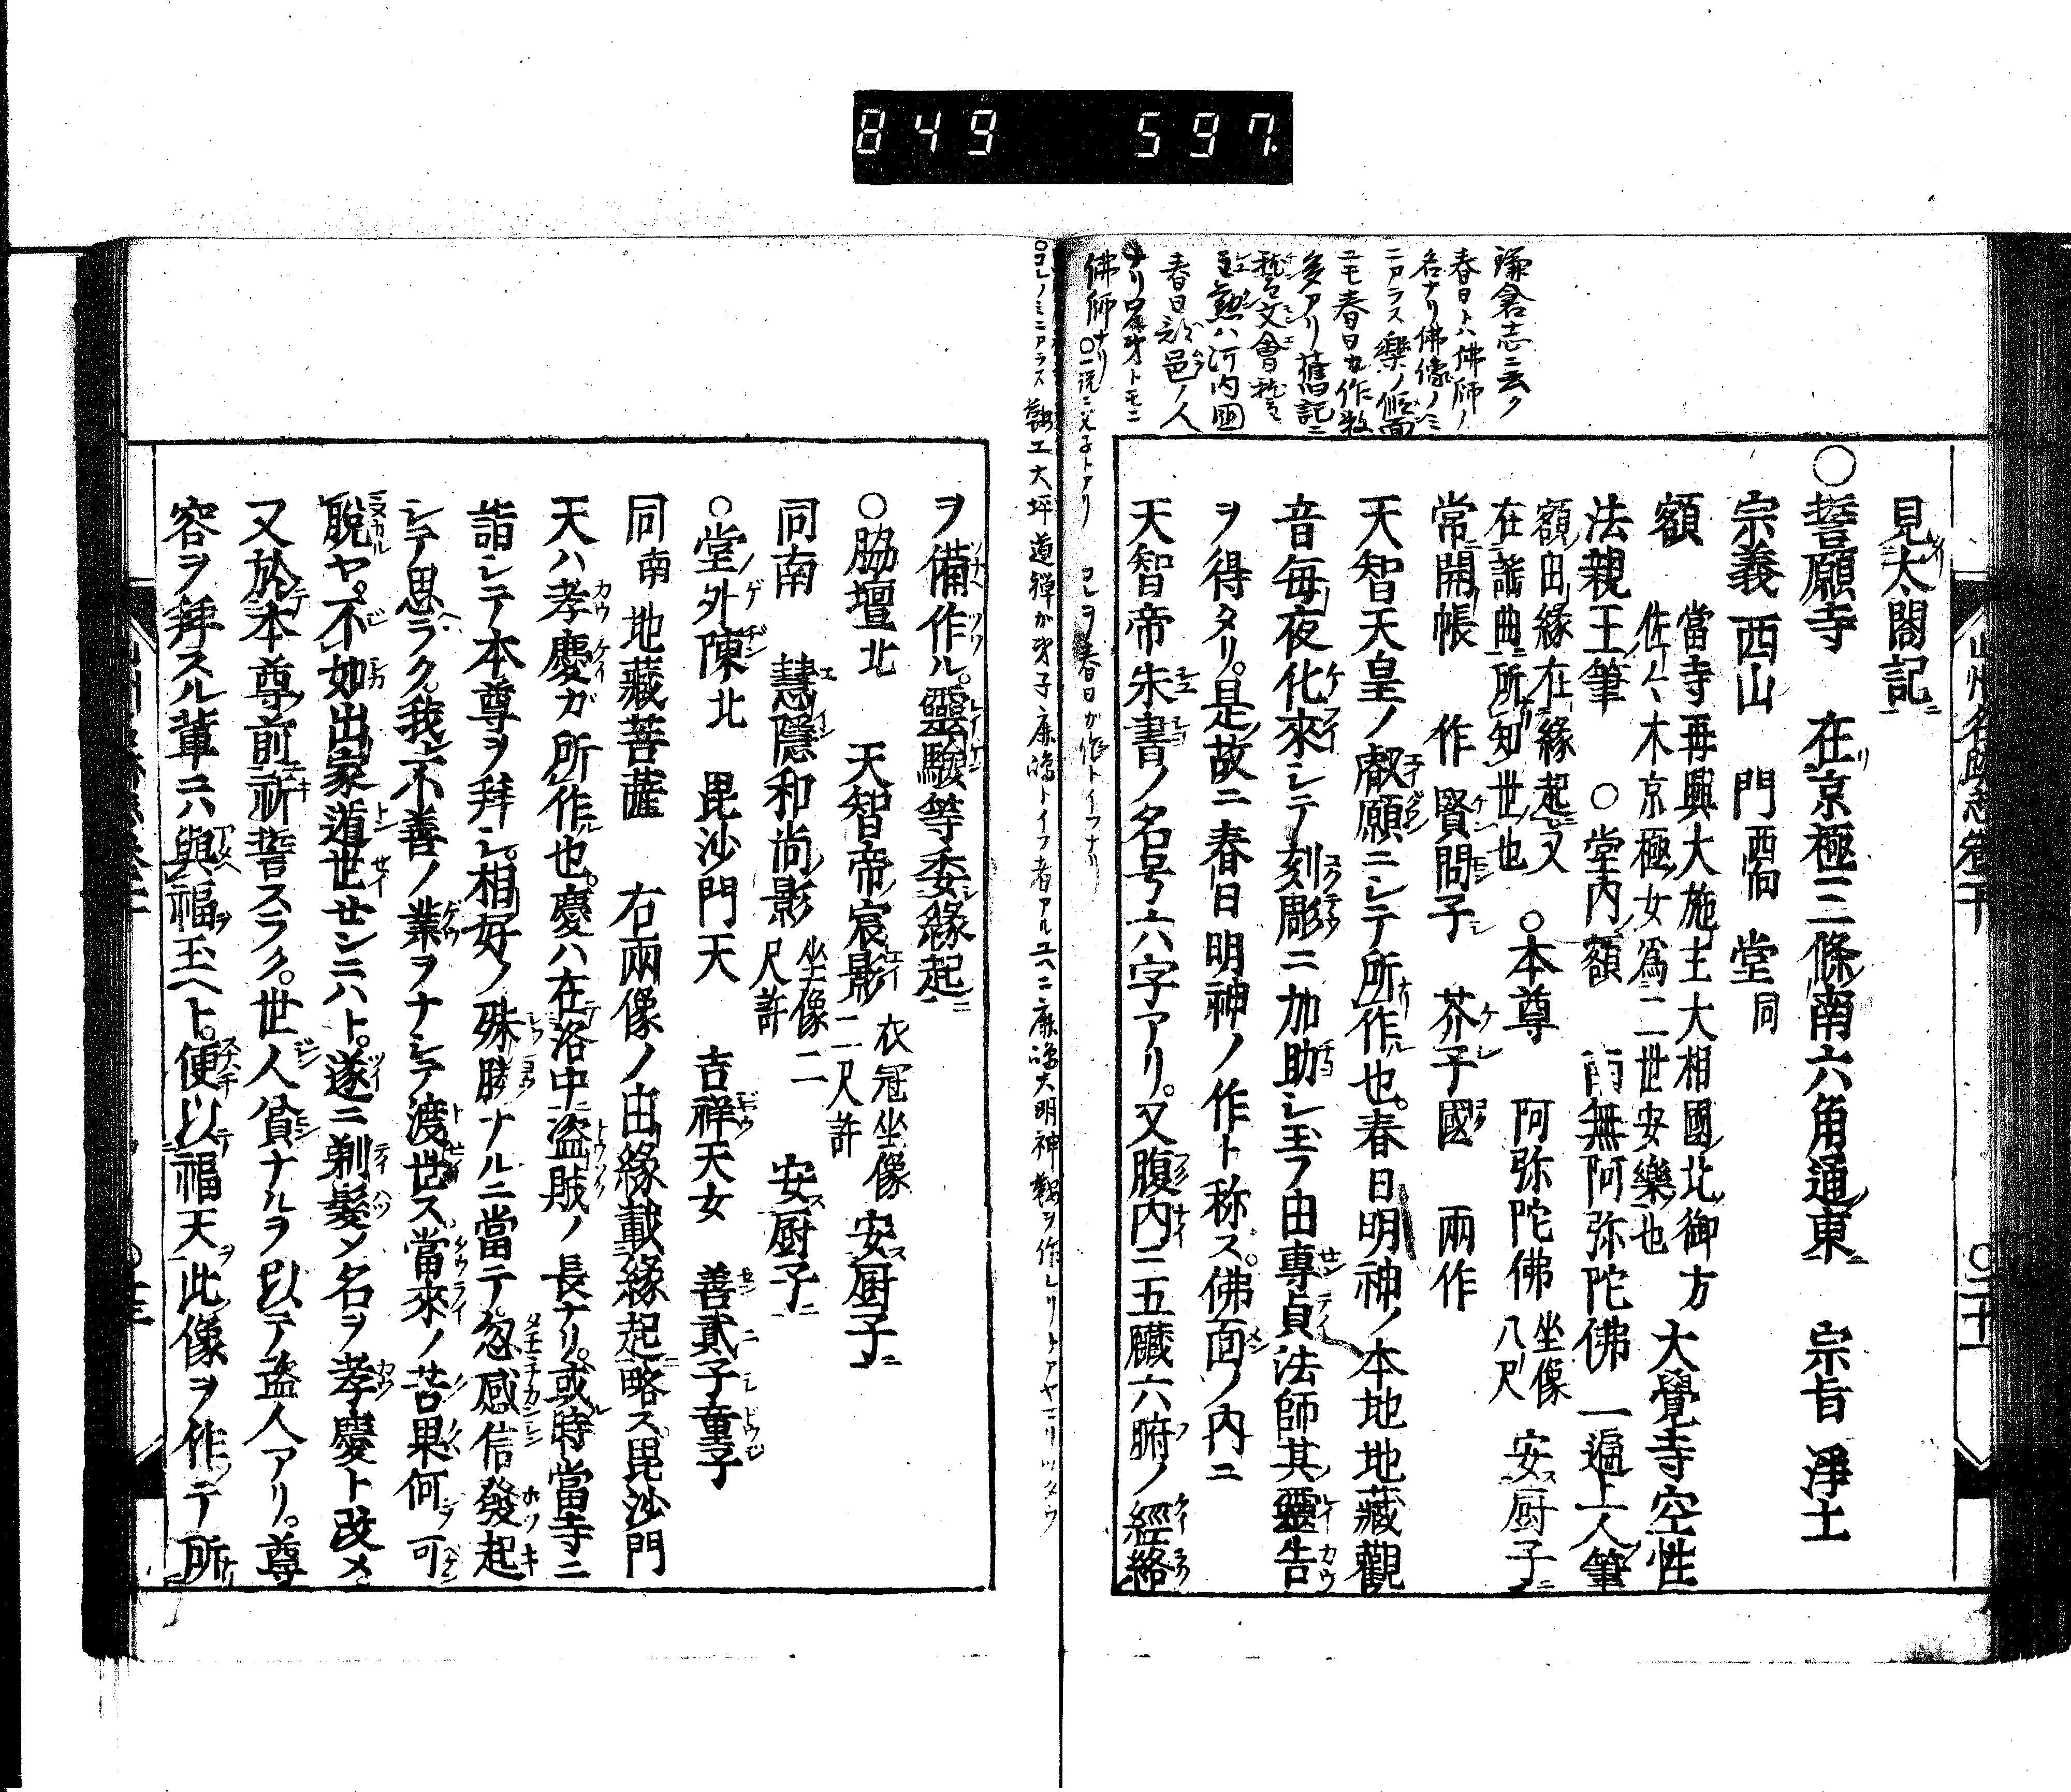 849 597.
鎌倉志ニ云ク
春日トハ佛師ノ
名ナリ佛像ノミ
ニアラス樂ノ假面
ニモ春日カ作数
多アリ舊記ニ
稽文會稽
主勲ハ河内國
春日部邑ノ人
ナリ兄弟トモニ
佛師ナリ
〇一説ニ父子トアリ コレヲ春日が作トイフナリ
〇コレノミニアラス 鞍工大坪道禅か弟子鹿嶋トイフ者アルユヘニ鹿嶋大明神鞍ヲ作レリトアヤマリツタウ
見太閤記
〇誓願寺 在京極三條南六角通東 宗旨 淨土
宗義西山 門西面 堂同
額 當寺再興大施主大相國北御方
佐々木京極女爲二世安樂也 大覺寺空性
法親王筆 〇堂内額 南無阿弥陀佛 一遍上人筆
額由緣在緣起又
在謠曲所知世也 〇本尊 阿弥陀佛 坐像
八尺 安厨子
常開帳 作 賢問子 芥子國 兩作
天智天皇ノ叡願ニシテ所作也。春日明神ノ本地地藏觀
音毎夜化來シテ刻彫ニ加助シ玉フ由專貞法師其靈告
ヲ得タリ。是故ニ春日明神ノ作ト称ス。佛面ノ内ニ
天智帝朱書ノ名号六字アリ。又腹内ニ五臟六腑ノ經絡
ヲ備作ル。靈驗等委緣起
〇脇壇北 天智帝宸影 衣冠坐像
二尺許 安厨子
同南 慧隱和尚影 坐像二
尺許 安厨子
〇堂外陳北 毘沙門天 吉祥天女 善貳子童子
同南 地藏菩薩 右兩像ノ由緣載緣起略ス毘沙門
天ハ孝慶ガ所作也。慶ハ在洛中盜賊ノ長ナリ。或時當寺ニ
詣シテ本尊ヲ拜シ。相好ノ殊勝ナルニ當テ。忽感信發起
シテ思ラク。我亦不善ノ業ヲナシテ渡世ス。當來ノ苦果何可
脫ヤ。不如出家遁世センニハト。遂ニ剃髮メ名ヲ孝慶ト改メ
又於本尊前祈誓スラク。世人貧ナルヲ以テ盜人アリ。尊
容ヲ拜スル輩ニハ與福玉ヘト。便以福天此像ヲ作テ所